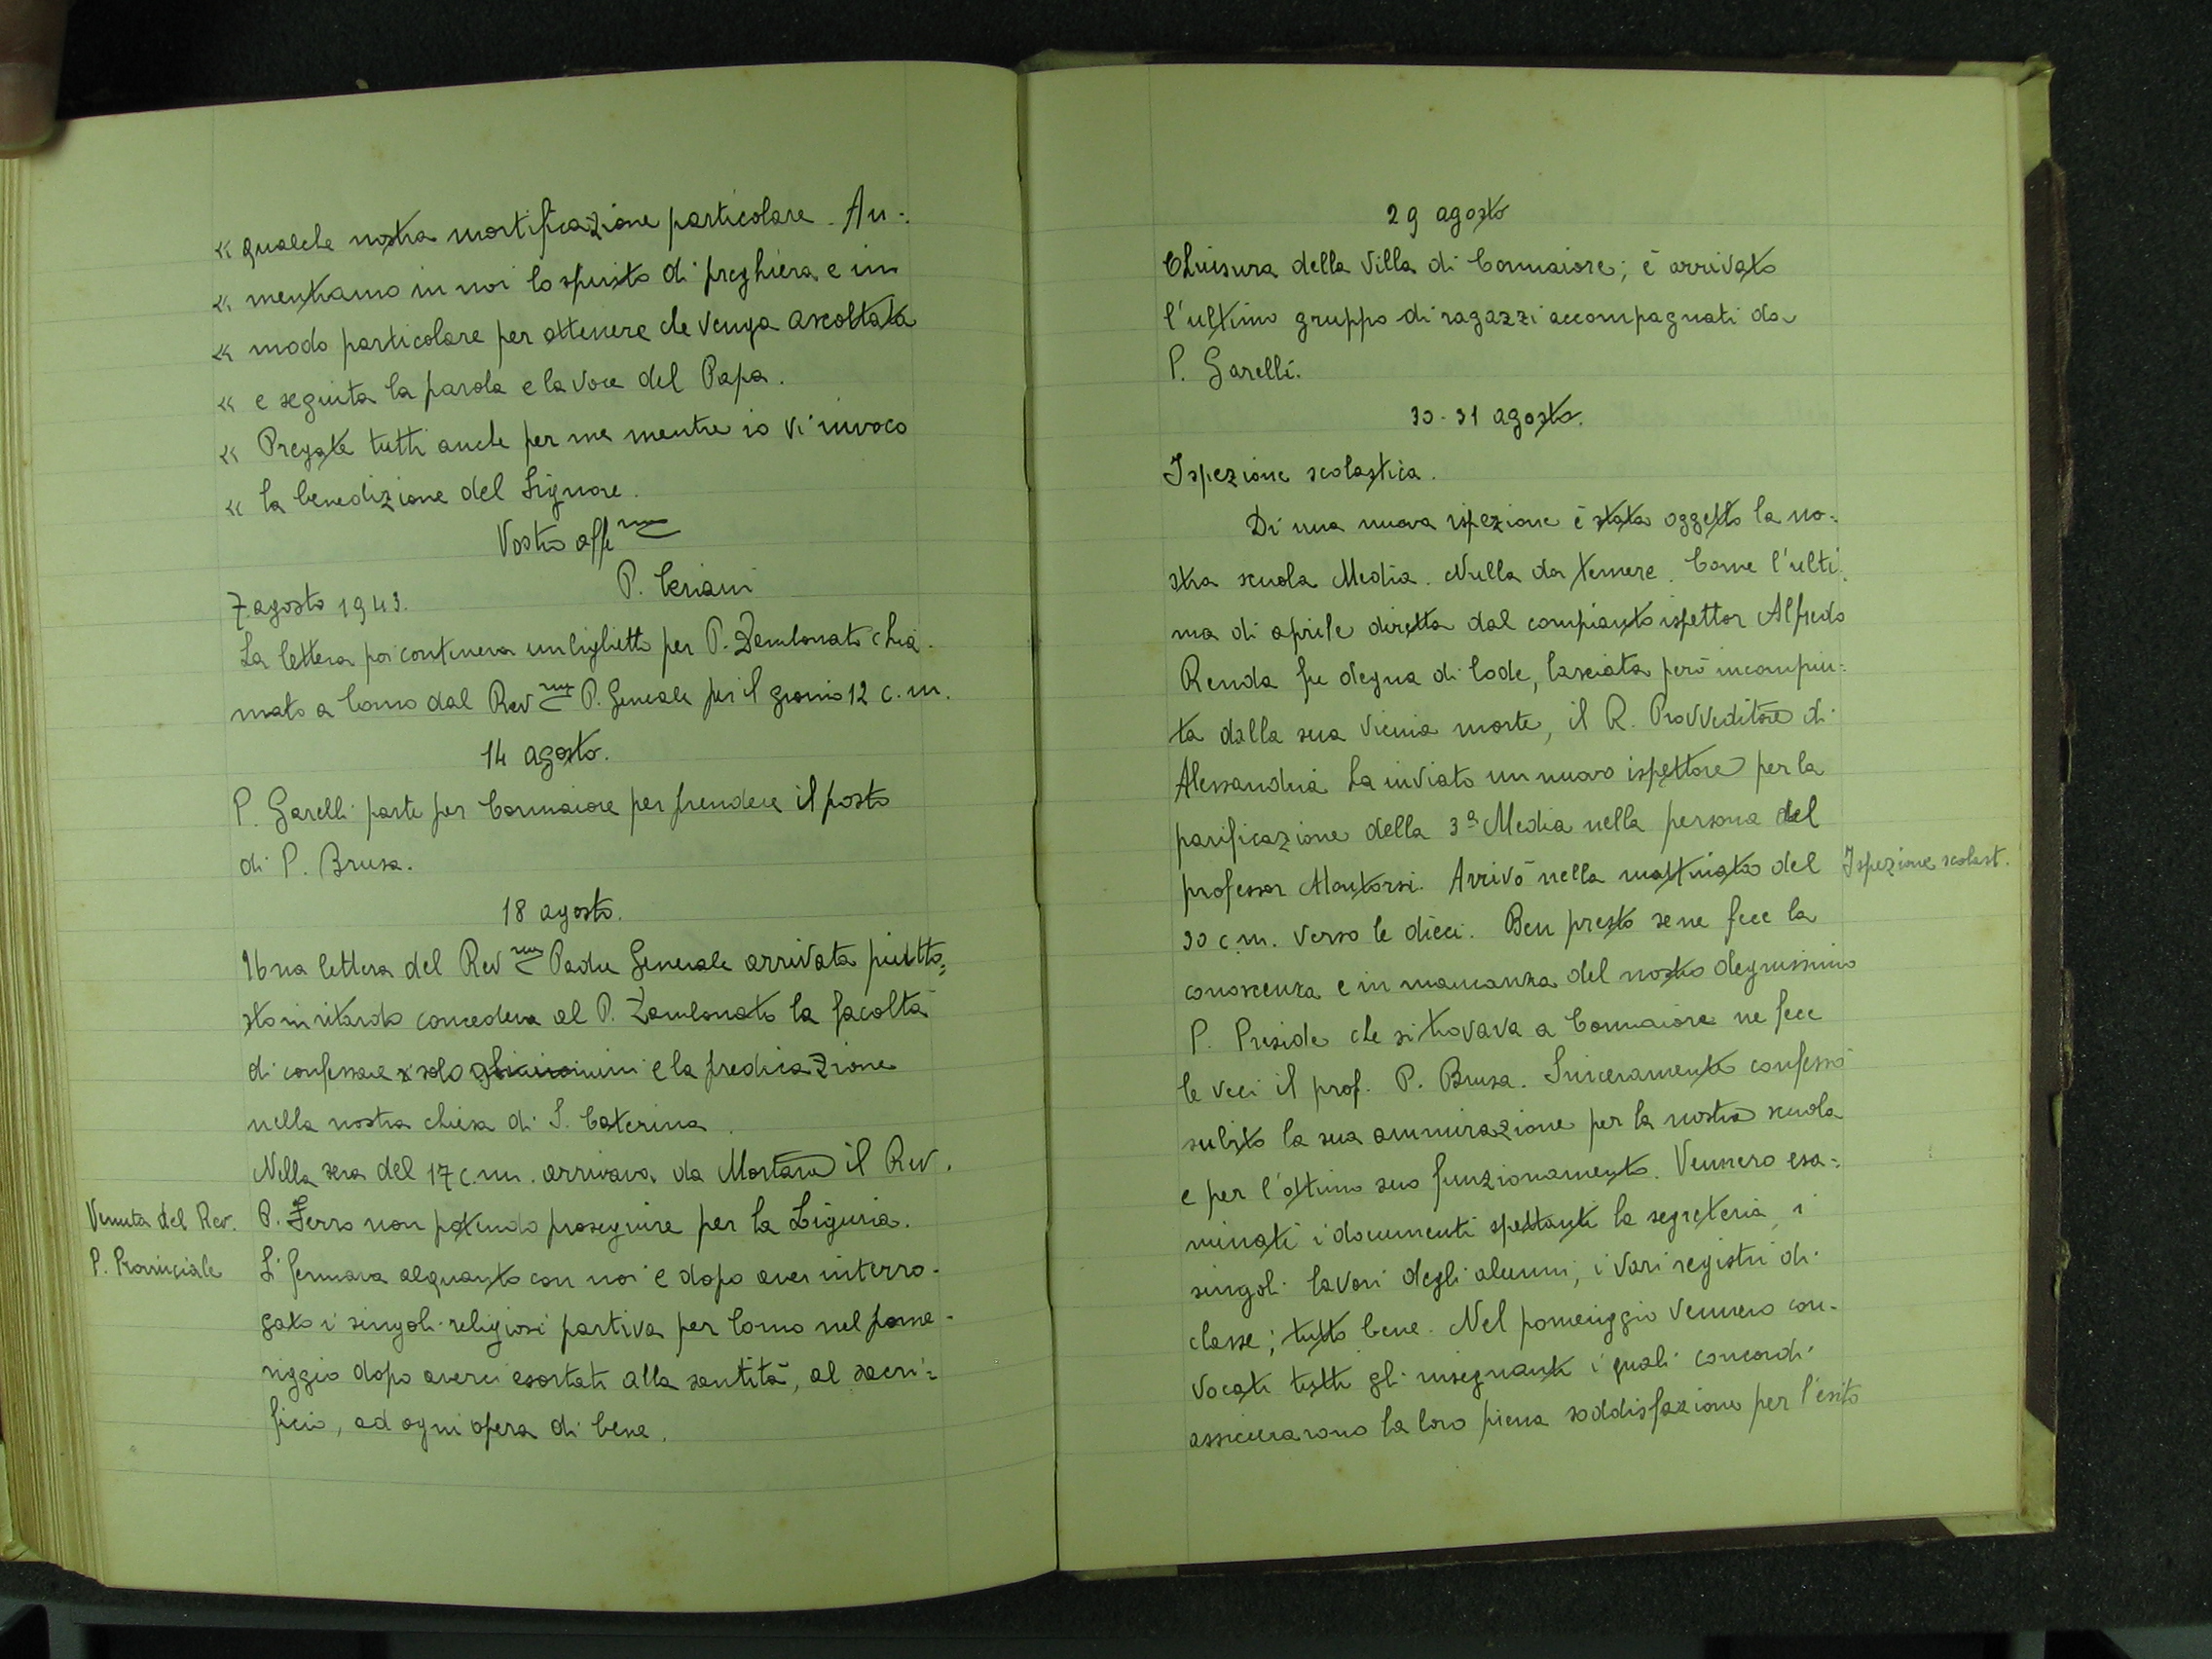 « qualche nostra mortificazione particolare. Au-
« mentiamo in noi lo spirito di preghiera e in
« modo particolare per ottenere che venga ascoltata
« e seguita la parola e la voce del Papa.
« Pregate tutti anche per me mentre io vi invoco
« la benedizione del Signore.
Vostro aff mo
P. Ceriani
7 agosto 1943.
La lettera poi conteneva un biglietto per P. Zambonato chia-
mato a Como dal Rev mo P. Generale per il giorno 12 c. m.
14 agosto.
P. Garelli parte per Cormaiore per prendere il posto
di P. Brusa.
18 agosto.
Una lettera del Rev mo Padre Generale arrivata piutto=
sto in ritardo concedeva al P. Zambonato la facoltà
di confessare x solo gli uomini e la predicazione
nella nostra chiesa di S. Caterina.
Nella sera del 17 c. m. arrivava da Mortara il Rev.
Venuta del Rev.
P. Provinciale
P. Ferro non potendo proseguire per la Liguria.
Si fermava alquanto con noi e dopo aver interro-
gato i singoli religiosi partiva per Como nel pome-
riggio dopo averci esortati alla santità, al sacri=
ficio, ad ogni opera di bene.
29 agosto
Chiusura della Villa di Cormaiore; è arrivato
l'ultimo gruppo di ragazzi accompagnati da
P. Garelli.
30-31 agosto.
Ispezione scolastica.
Di una nuova ispezione è stata oggetto la no=
stra scuola Media. Nulla da temere. Come l'ulti-
ma di aprile diretta dal compianto ispettor Alfredo
Renda fu degna di lode, lasciata però incompiu=
ta dalla sua vicina morte, il R. Provveditore di
Alessandria ha inviato un nuovo ispettore per la
parificazione della 3ª Media nella persona del
professor Montorsi. Arrivò nella mattinata del
Ispezione scolast.
30 c. m. verso le dieci. Ben presto se ne fece la
conoscenza e in mancanza del nostro degnissimo
P. Preside che si trovava a Cormaiore ne fece
le veci il prof. P. Brusa. Sinceramente confessò
subito la sua ammirazione per la nostra scuola
e per l'ottimo suo funzionamento. Vennero esa=
minati i documenti spettanti la segreteria, i
singoli lavori degli alunni, i vari registri di
classe; tutto bene. Nel pomeriggio vennero con-
vocati tutti gli insegnanti i quali concordi
assicurarono la loro piena soddisfazione per l'esito